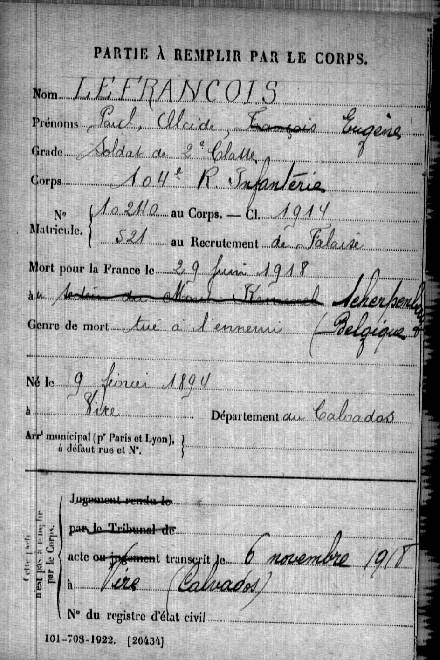 PARTIE À REMPLIR PAR LE CORPS.
Nom LEFRANCOIS
Prénoms Paul, Alcide, François Eugène
Grade Soldat de 2e Classe
Corps 104e R. Infanterie
No 10240 au Corps. — Cl. 1914
Matricule. 521 au Recrutement de Falaise
Mort pour la France le 29 juin 1918
à au secteur du Mont Kemmel Scherpenberg
Genre de mort tué à l'ennemi (Belgique)
Né le 9 février 1894
à Vire Département du Calvados
Arrt municipal (pr Paris et Lyon),
à défaut rue et No.
Cette partie
n'est pas à remplir
par le Corps.
Jugement rendu le
par le Tribunal de
acte ou jugement transcrit le 6 novembre 1918
à Vire (Calvados)
No du registre d'état civil
101-708-1922. [26434]